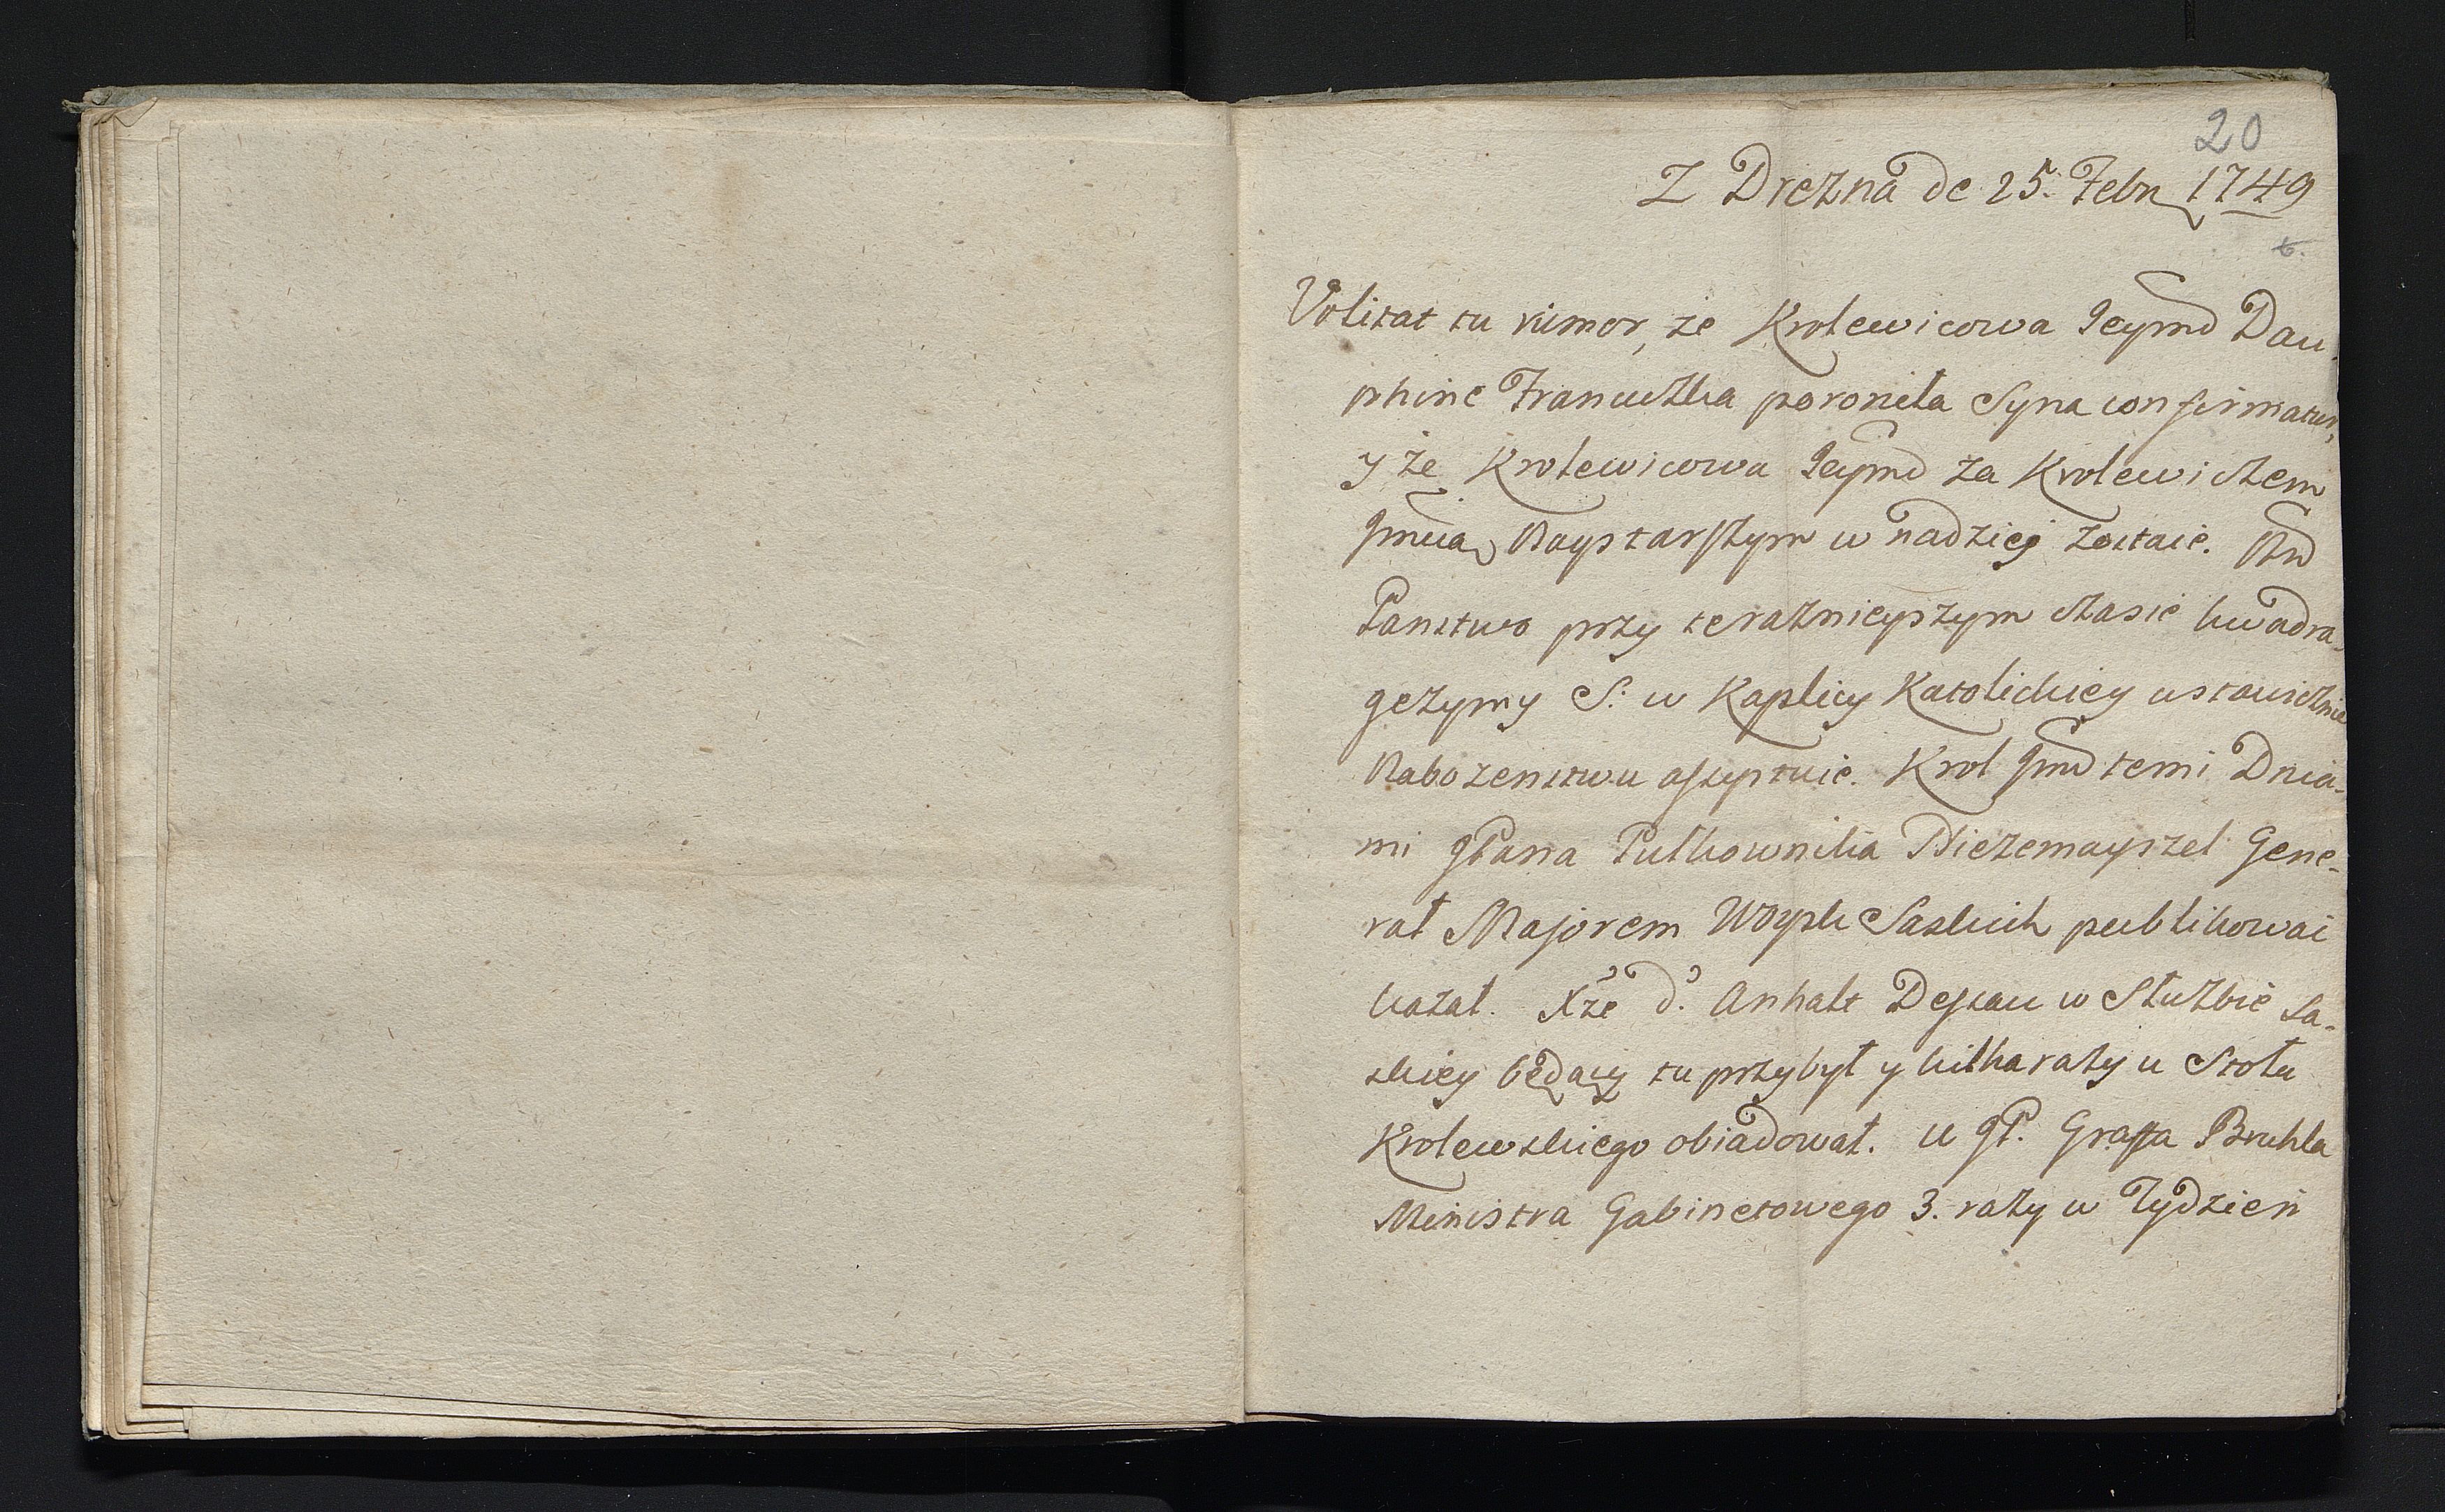 20
Z Drezna de 25. Febr 1749
6.
Volitat tu rumor, że Krolewicowa Jeymć Dau-
phine Francuzka poroniła Syna confirmatur,
y że Krolewicowa Jeymć za Krolewiczem
Jmcią Naystarszym w nadziej zostaie. Nw
Panstwo przy teraznieyszym czasie kwadra-
gezymy S. w Kaplicy Katolickiey ustawicznie
Nabozenstwu assystuie. Krol Jmć temi Dnia-
mi JPana Pułkownika Diezemayszel Gene-
rał Majorem Woysk Saskich publikować
kazał. Xże d. Anhalt Dessau w Służbie Sa-
skiey będący tu przybył y kilka razy u Stołu
Krolewskiego obiadował. U JP. Graffa Bruhla
Ministra Gabinetowego 3. razy w Tydzień